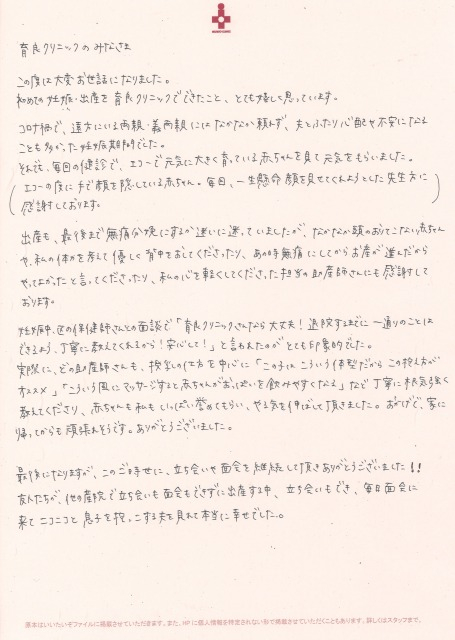 育良クリニックのみなさま
この度は大変お世話になりました。
初めての妊娠・出産を育良クリニックでできたこと、とても嬉しく思っています。
コロナ禍で、遠方にいる両親・義両親にはなかなか頼れず、夫とふたり心配や不安になる
ことも多かった妊娠期間でした。
それでも、毎回の健診で、エコーで元気に大きく育っている赤ちゃんを見て元気をもらいました。
(エコーの度に手で顔を隠している赤ちゃん。毎回、一生懸命顔を見せてくれようとした先生方に
感謝しております。)
出産も、最後まで無痛分娩にするか迷いに迷っていましたが、なかなか頭のおりてこない赤ちゃん
や、私の体力を考えて優しく背中をおしてくださったり、あの時無痛にしてからお産が進んだから
やってよかったと言ってくださったり、私の心を軽くしてくださった担当の助産師さんにも感謝して
おります。
妊娠中、区の保健師さんとの面談で「育良クリニックさんなら大丈夫!退院するまでに一通りのことは
できるよう、丁寧に教えてくれるから!安心して!」と言われたのがとても印象的でした。
実際に、どの助産師さんも、授乳の仕方を中心に「この子はこういう体型だからこの抱え方が
オススメ」「こういう風にマッサージすると赤ちゃんがおっぱいを飲みやすくなる」など丁寧に根気強く
教えてくださり、赤ちゃんも私もいっぱい誉めてもらい、やる気を伸ばして頂きました。おかげで、家に
帰ってからも頑張れそうです。ありがとうございました。
最後になりますが、このご時世に、立ち会いや面会を継続して頂きありがとうございました!!
友人たちが、他の産院で立ち会いも面会もできずに出産する中、立ち会いもでき、毎日面会に
来てニコニコと息子を抱っこする夫を見れて本当に幸せでした。
原本はいいたいぞファイルに掲載させていただきます。また、HPに個人情報を特定されない形で掲載させていただくこともあります。詳しくはスタッフまで。